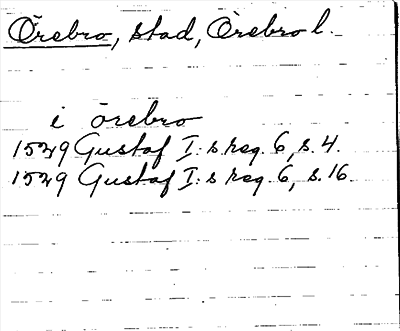 Örebro, stad, Örebro l.
i örebro
1529 Gustaf I:s reg. 6, s. 4.
1529 Gustaf I:s reg. 6, s. 16.